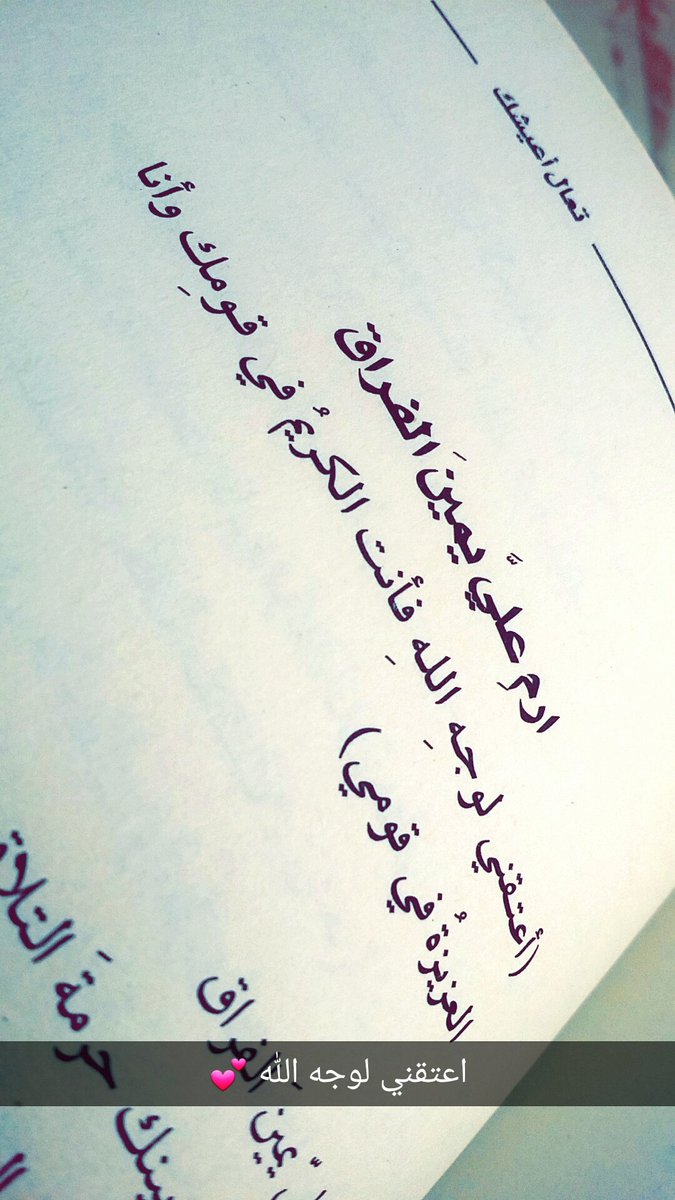 تعال أعيشك
ارمِ عليَّ يمينَ الفراق
(أعتقني لوجهِ اللهِ فأنتِ الكريُم في قومِك وأنا
العزيزةُ في قومي)
يمّينَ الفراق
حرمةَ
اعتقني لوجه الله 💕